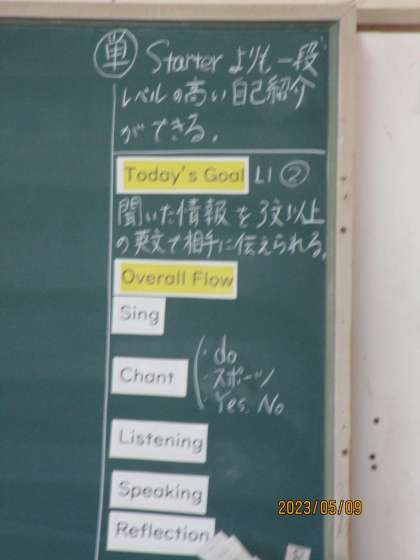 単 Starter よりも一段
レベルの高い自己紹介
ができる。
Today's Goal L1 ②
聞いた情報を3文以上
の英文で相手に伝えられる。
Overall Flow
Sing
Chant
・do
・スポーツ
・Yes, No
Listening
Speaking
Reflection
2023/05/09